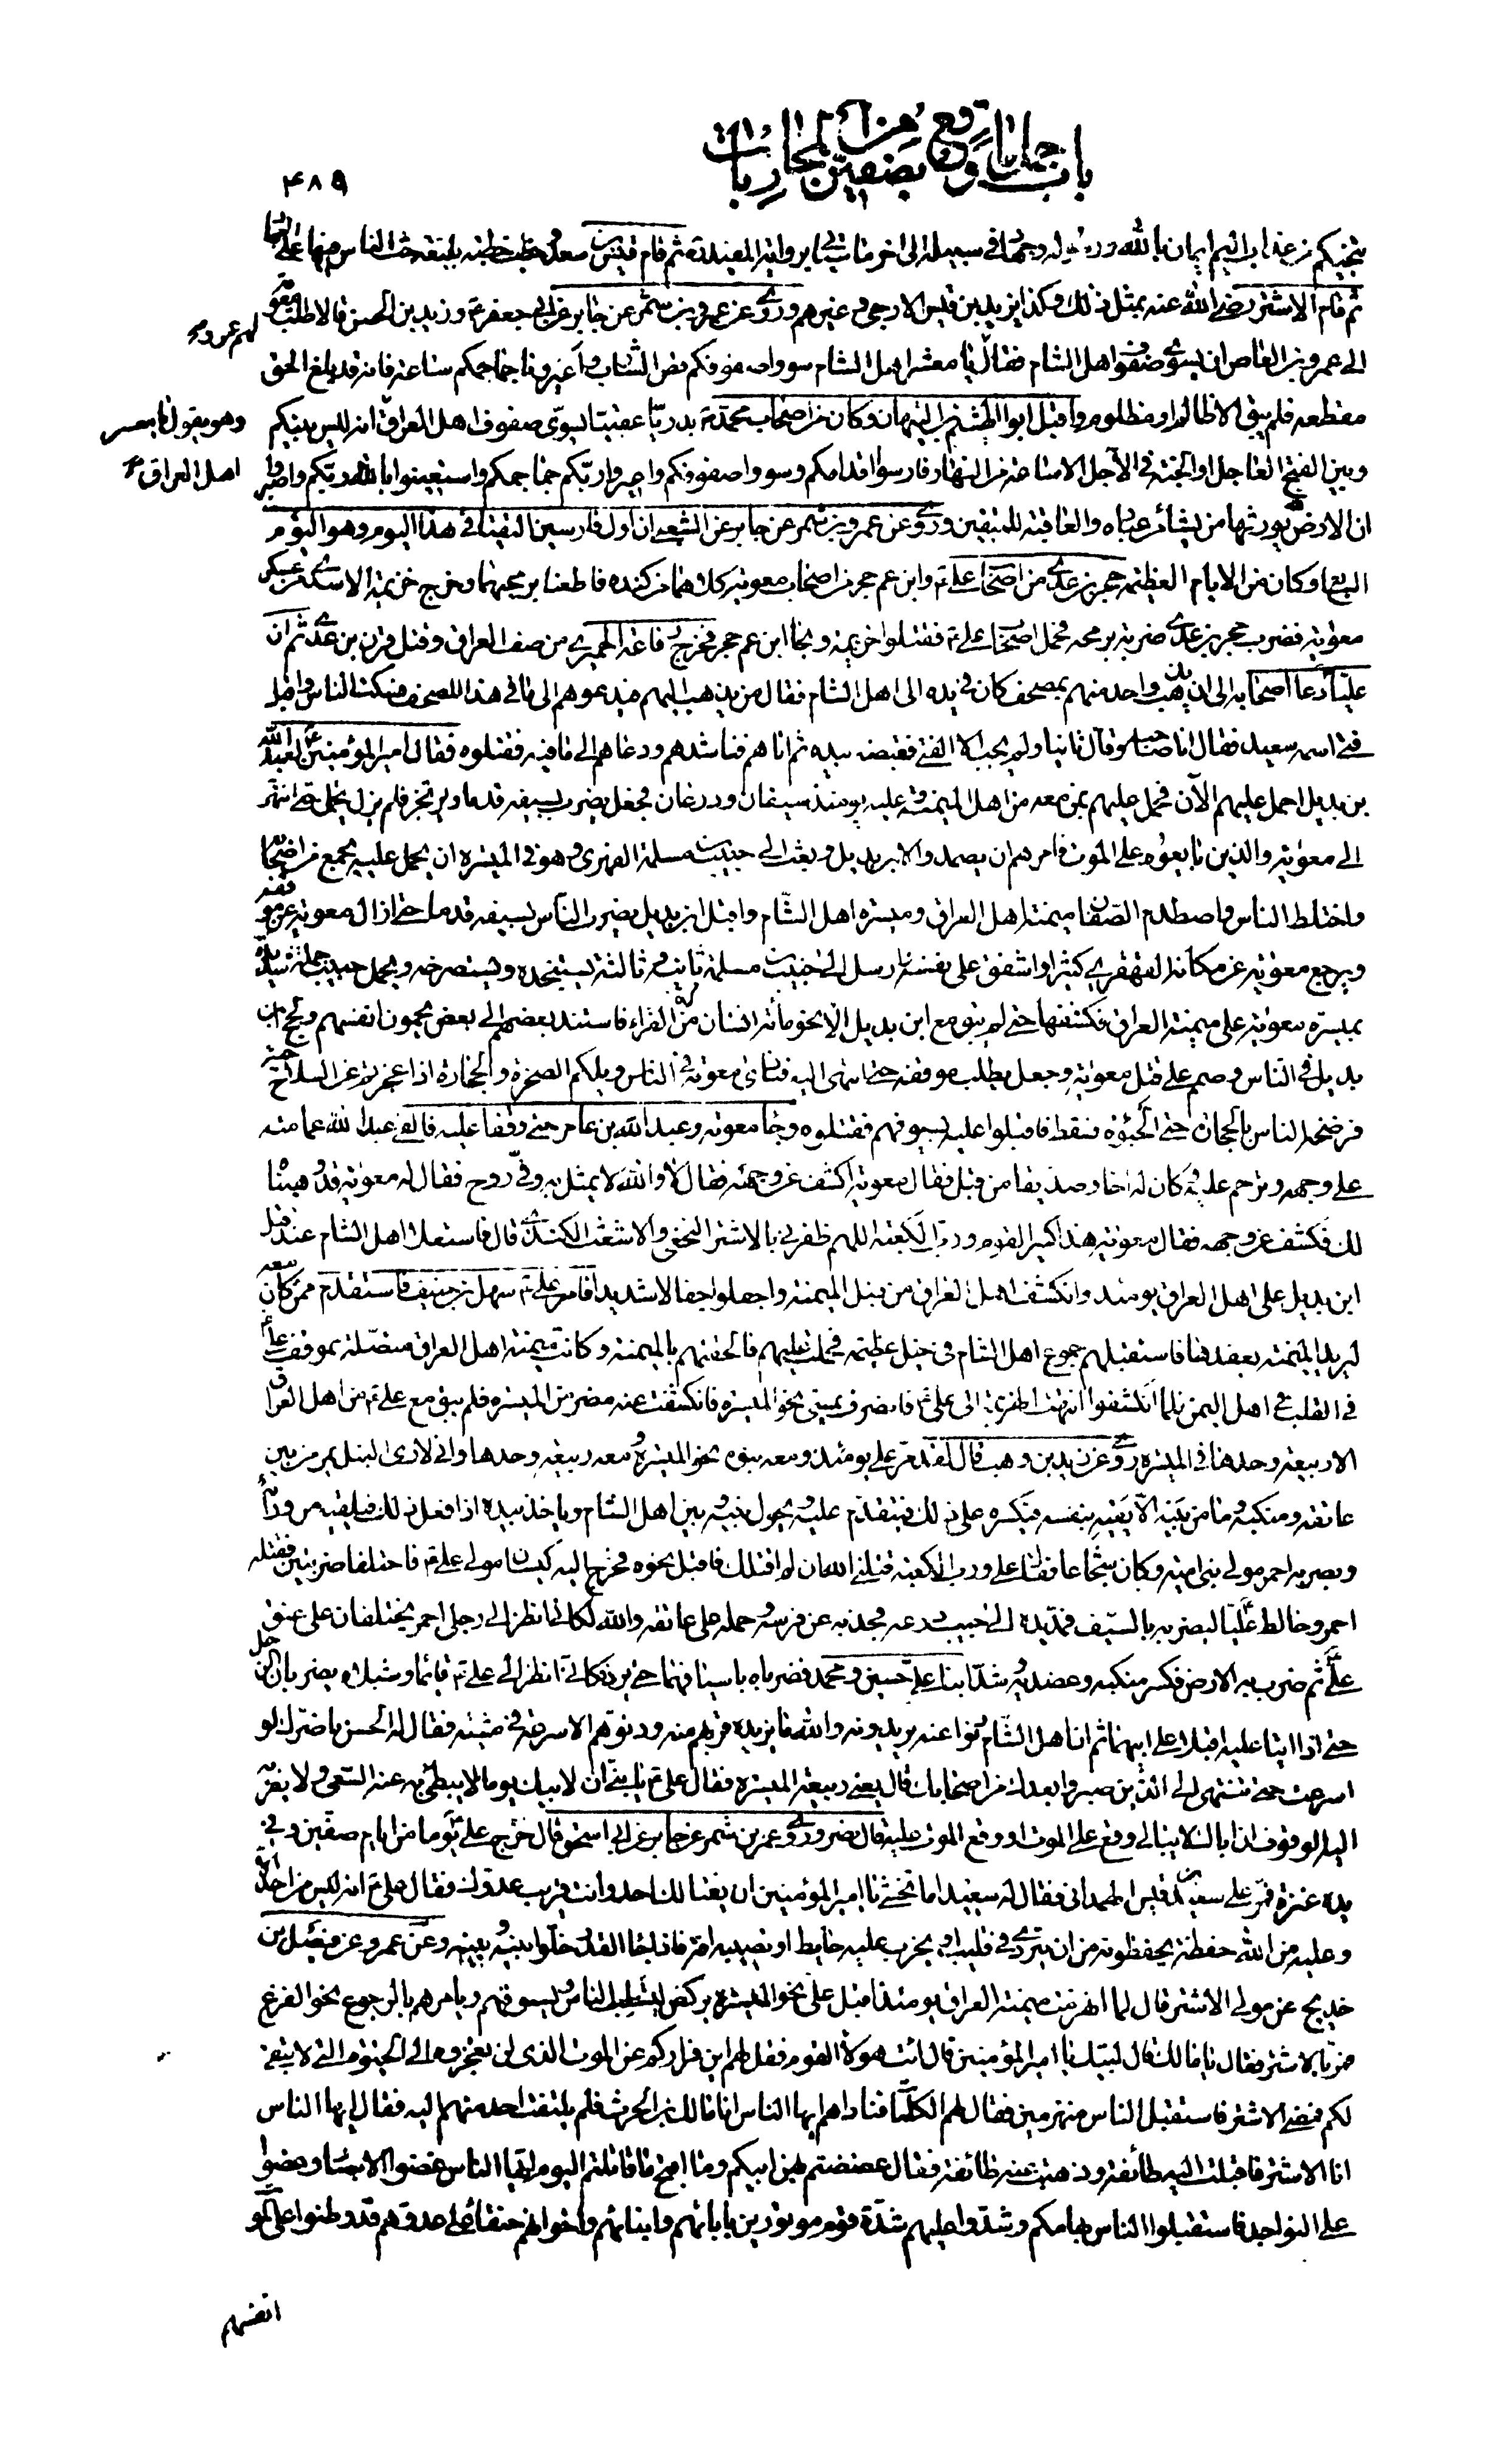 باب جمل ما وقع بصفين من المحاربات
۴۸۹
ينجيكم من عذاب اليم ايمان بالله ورسوله وجهاد في سبيله الى اخر ما سيأتي برواية المفيد ثم قام قيس بن سعد وخطب خطبة بليغة حث الناس فيها على القتال
ثم قام الاشتر رضي الله عنه بمثل ذلك وكذا يزيد بن قيس الارحبي وغيرهم وروى عن عمرو بن شمر عن جابر عن ابي جعفر ع وزيد بن الحسن قالا طلب معوية
الى عمرو بن العاص ان يسوي صفوف اهل الشام فقال يا معشر اهل الشام سووا صفوفكم قص الشارب واعيرونا جماجمكم ساعة فانه قد بلغ الحق
لهم عمرو صح
مقطعه فلم يبق الا ظالم او مظلوم واقبل ابو الهيثم بن التيهان وكان من اصحاب محمد ص بدريا عقبيا يسوي صفوف اهل العراق انه ليس بينكم
وهو يقول يا معشر
وبين الفتح العاجل او الجنة في الآجل الا ساعة من النهار فارسوا اقدامكم وسووا صفوفكم واعيروا ربكم جماجمكم واستعينوا بالله ربكم واصبروا
اهل العراق صح
ان الارض لله يورثها من يشاء من عباده والعاقبة للمتقين وروى عن عمرو بن شمر عن جابر عن الشعبي ان اول فارسين التقيا في هذا اليوم وهو اليوم
السابع وكان من الايام العظيمة حجر بن عدي من اصحاب علي ع وابن عم حجر من اصحاب معوية كلاهما من كندة فاطعنا برمحيهما وخرج خزيمة الاسدي من عسكر
معوية فضرب حجر بن عدي ضربة برمحه فحمل اصحاب علي ع فقتلوا خزيمة ونجا ابن عم حجر فخرج رفاعة الحميري من صف العراق وقتل قرن بن عدي ثم ان
عليا ع دعا اصحابه الى ان يذهب واحد منهم بمصحف كان في يده الى اهل الشام فقال من يذهب اليهم فيدعوهم الى ما في هذا المصحف فسكت الناس واقبل
فتى اسمه سعيد فقال انا صاحبه وقال ثانيا ولم يجب الا الفتى فقبضه بيده ثم اتاهم فناشدهم ودعاهم الى ما فيه فقتلوه فقال امير المؤمنين ع لعبد الله
بن بديل احمل عليهم الآن فحمل عليهم بمن معه من اهل الميمنة وعليه يومئذ سيفان ودرعان فجعل يضرب بسيفه قدما ويرتجز فلم يزل يحمل حتى انتهى
الى معوية والذين بايعوه على الموت فامرهم ان يصمدوا لابن بديل وبعث الى حبيب بن مسلمة الفهري وهو في الميسرة ان يحمل عليه بجمع من اصحابه
واختلط الناس واصطدم الصفان ميمنة اهل العراق وميسرة اهل الشام واقبل ابن بديل يضرب الناس بسيفه قدما حتى ازال معوية عن موقفه
ويرجع معوية عن مكانه القهقرى كثيرا واشفق على نفسه وارسل الى حبيب بن مسلمة ثانية وثالثة يستنجده ويستصرخه ويحمل حبيب حملة شديدة
بميسرة معوية على ميمنة العراق فكشفها حتى لم يبق مع ابن بديل الا نحو مائة انسان من القراء فاستند بعضهم الى بعض يحمون انفسهم ولج ابن
بديل في الناس وصمم على قتل معوية وجعل يطلب موقفه حتى انتهى اليه فنادى معوية في الناس ويلكم الصخرة والحجارة اذا عجزتم عن السلاح
فرضخه الناس بالحجارة حتى اثخنوه فسقط فاقبلوا عليه بسيوفهم فقتلوه وجاء معوية وعبد الله بن عامر حتى وقفا عليه فالقى عبد الله عمامته
على وجهه وترحم عليه وكان له اخا وصديقا من قبل فقال معوية اكشف عن وجهه فقال لا والله لا يمثل به وفيّ روح فقال له معوية قد وهبناه
لك فكشف عن وجهه فقال معوية هذا كبش القوم ورب الكعبة اللهم ظفرني بالاشتر النخعي والاشعث الكندي قال فاستعلى اهل الشام عند قتل
ابن بديل على اهل العراق يومئذ وانكشف اهل العراق من قبل الميمنة واجفلوا اجفالا شديدا فامر علي ع سهل بن حنيف فاستقدم ممن كان معه
ليرد الميمنة بعضدها فاستقبلهم جموع اهل الشام في خيل عظيمة فحملت عليهم فالحقتهم بالميمنة وكانت ميمنة اهل العراق متصلة بموقف علي ع
في القلب في اهل اليمن فلما انكشفوا انتهت الهزيمة الى علي ع فانصرف يمشي نحو الميسرة فانكشفت عنه مضر من الميسرة فلم يبق مع علي ع من اهل العراق
الا ربيعة وحدها في الميسرة روى عن زيد بن وهب قال لقد مر علي يومئذ ومعه بنوه نحو الميسرة ومعه ربيعة وحدها واني لارى النبل يمر من بين
عاتقه ومنكبيه وما من بنيه الا يقيه بنفسه فيكره علي ذلك فيتقدم عليه ويحول بينه وبين اهل الشام وياخذ بيده اذا فعل ذلك فيلقيه من ورائه
وبصر به احمر مولى بني امية وكان شجاعا فقال علي ورب الكعبة قتلني الله ان لم اقتلك فاقبل نحوه فخرج اليه كيسان مولى علي ع فاختلفا ضربتين فقتله
احمر وخالط عليا ليضربه بالسيف فمد يده الى جيب درعه فجذبه عن فرسه وحمله على عاتقه والله لكاني انظر الى رجلي احمر يختلفان على عنق
علي ثم ضرب به الارض فكسر منكبه وعضديه وشد ابنا علي حسين ومحمد فضرباه باسيافهما حتى برد فكاني انظر الى علي ع قائما وشبلاه يضربان الرجل
حتى اذا اتيا عليه اقبلا على ابيهما ثم ان اهل الشام دنوا عنه يريدونه والله ما يزيده قربهم منه ودنوهم الا سرعة في مشيته فقال له الحسن ما ضرك لو
اسرعت حتى تنتهي الى الذين صبروا بعدك من اصحابك قال يعني ربيعة الميسرة فقال علي ع يا بني ان لابيك يوما لا يبطئ به عنه السعي ولا يقربه
اليه الوقوف ان اباك لا يبالي وقع على الموت او وقع الموت عليه قال نصر وروى عمرو بن شمر عن جابر عن ابي اسحق قال خرج علي ع يوما من ايام صفين وفي
يده عنزة فمر على سعيد بن قيس الهمداني فقال له سعيد اما تخشى يا امير المؤمنين ان يغتالك احد وانت قريب عدوك فقال علي ع انه ليس من احد الا
وعليه من الله حفظة يحفظونه من ان يتردى في قليب او يخرب عليه حايط او تصيبه افة فاذا جاء القدر خلوا بينه وبينه وعن عمرو عن فضيل بن
خديج عن مولى الاشتر قال لما انهزمت ميمنة العراق يومئذ اقبل علي نحو الميسرة يركض يستثيب الناس ويستوقفهم ويامرهم بالرجوع نحو الفزع
فمر بالاشتر فقال يا مالك قال لبيك يا امير المؤمنين قال ائت هؤلاء القوم فقل لهم اين فراركم من الموت الذي لن تعجزوه الى الحيوة التي لا تبقى
لكم فمضى الاشتر فاستقبل الناس منهزمين فقال لهم الكلمات فناداهم ايها الناس انا مالك بن الحرث فلم يلتفت احد منهم اليه فقال ايها الناس
انا الاشتر فاقبلت اليه طائفة وذهبت عنه طائفة فقال عضضتم بهن ابيكم وما اقبح ما قاتلتم اليوم ايها الناس غضوا الابصار وعضوا
على النواجد فاستقبلوا الناس بهامكم وشدوا عليهم شدة قوم موتورين بابائهم وابنائهم واخوانهم حنقا على عدوهم قد وطنوا على الموت
انفسهم